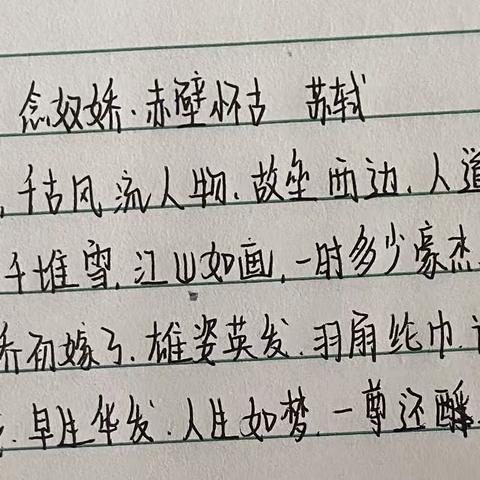 念奴娇·赤壁怀古 苏轼
,千古风流人物.故垒西边.人道
千堆雪.江山如画,一时多少豪杰.
乔初嫁了.雄姿英发.羽扇纶巾.
.早生华发.人生如梦.一尊还酹